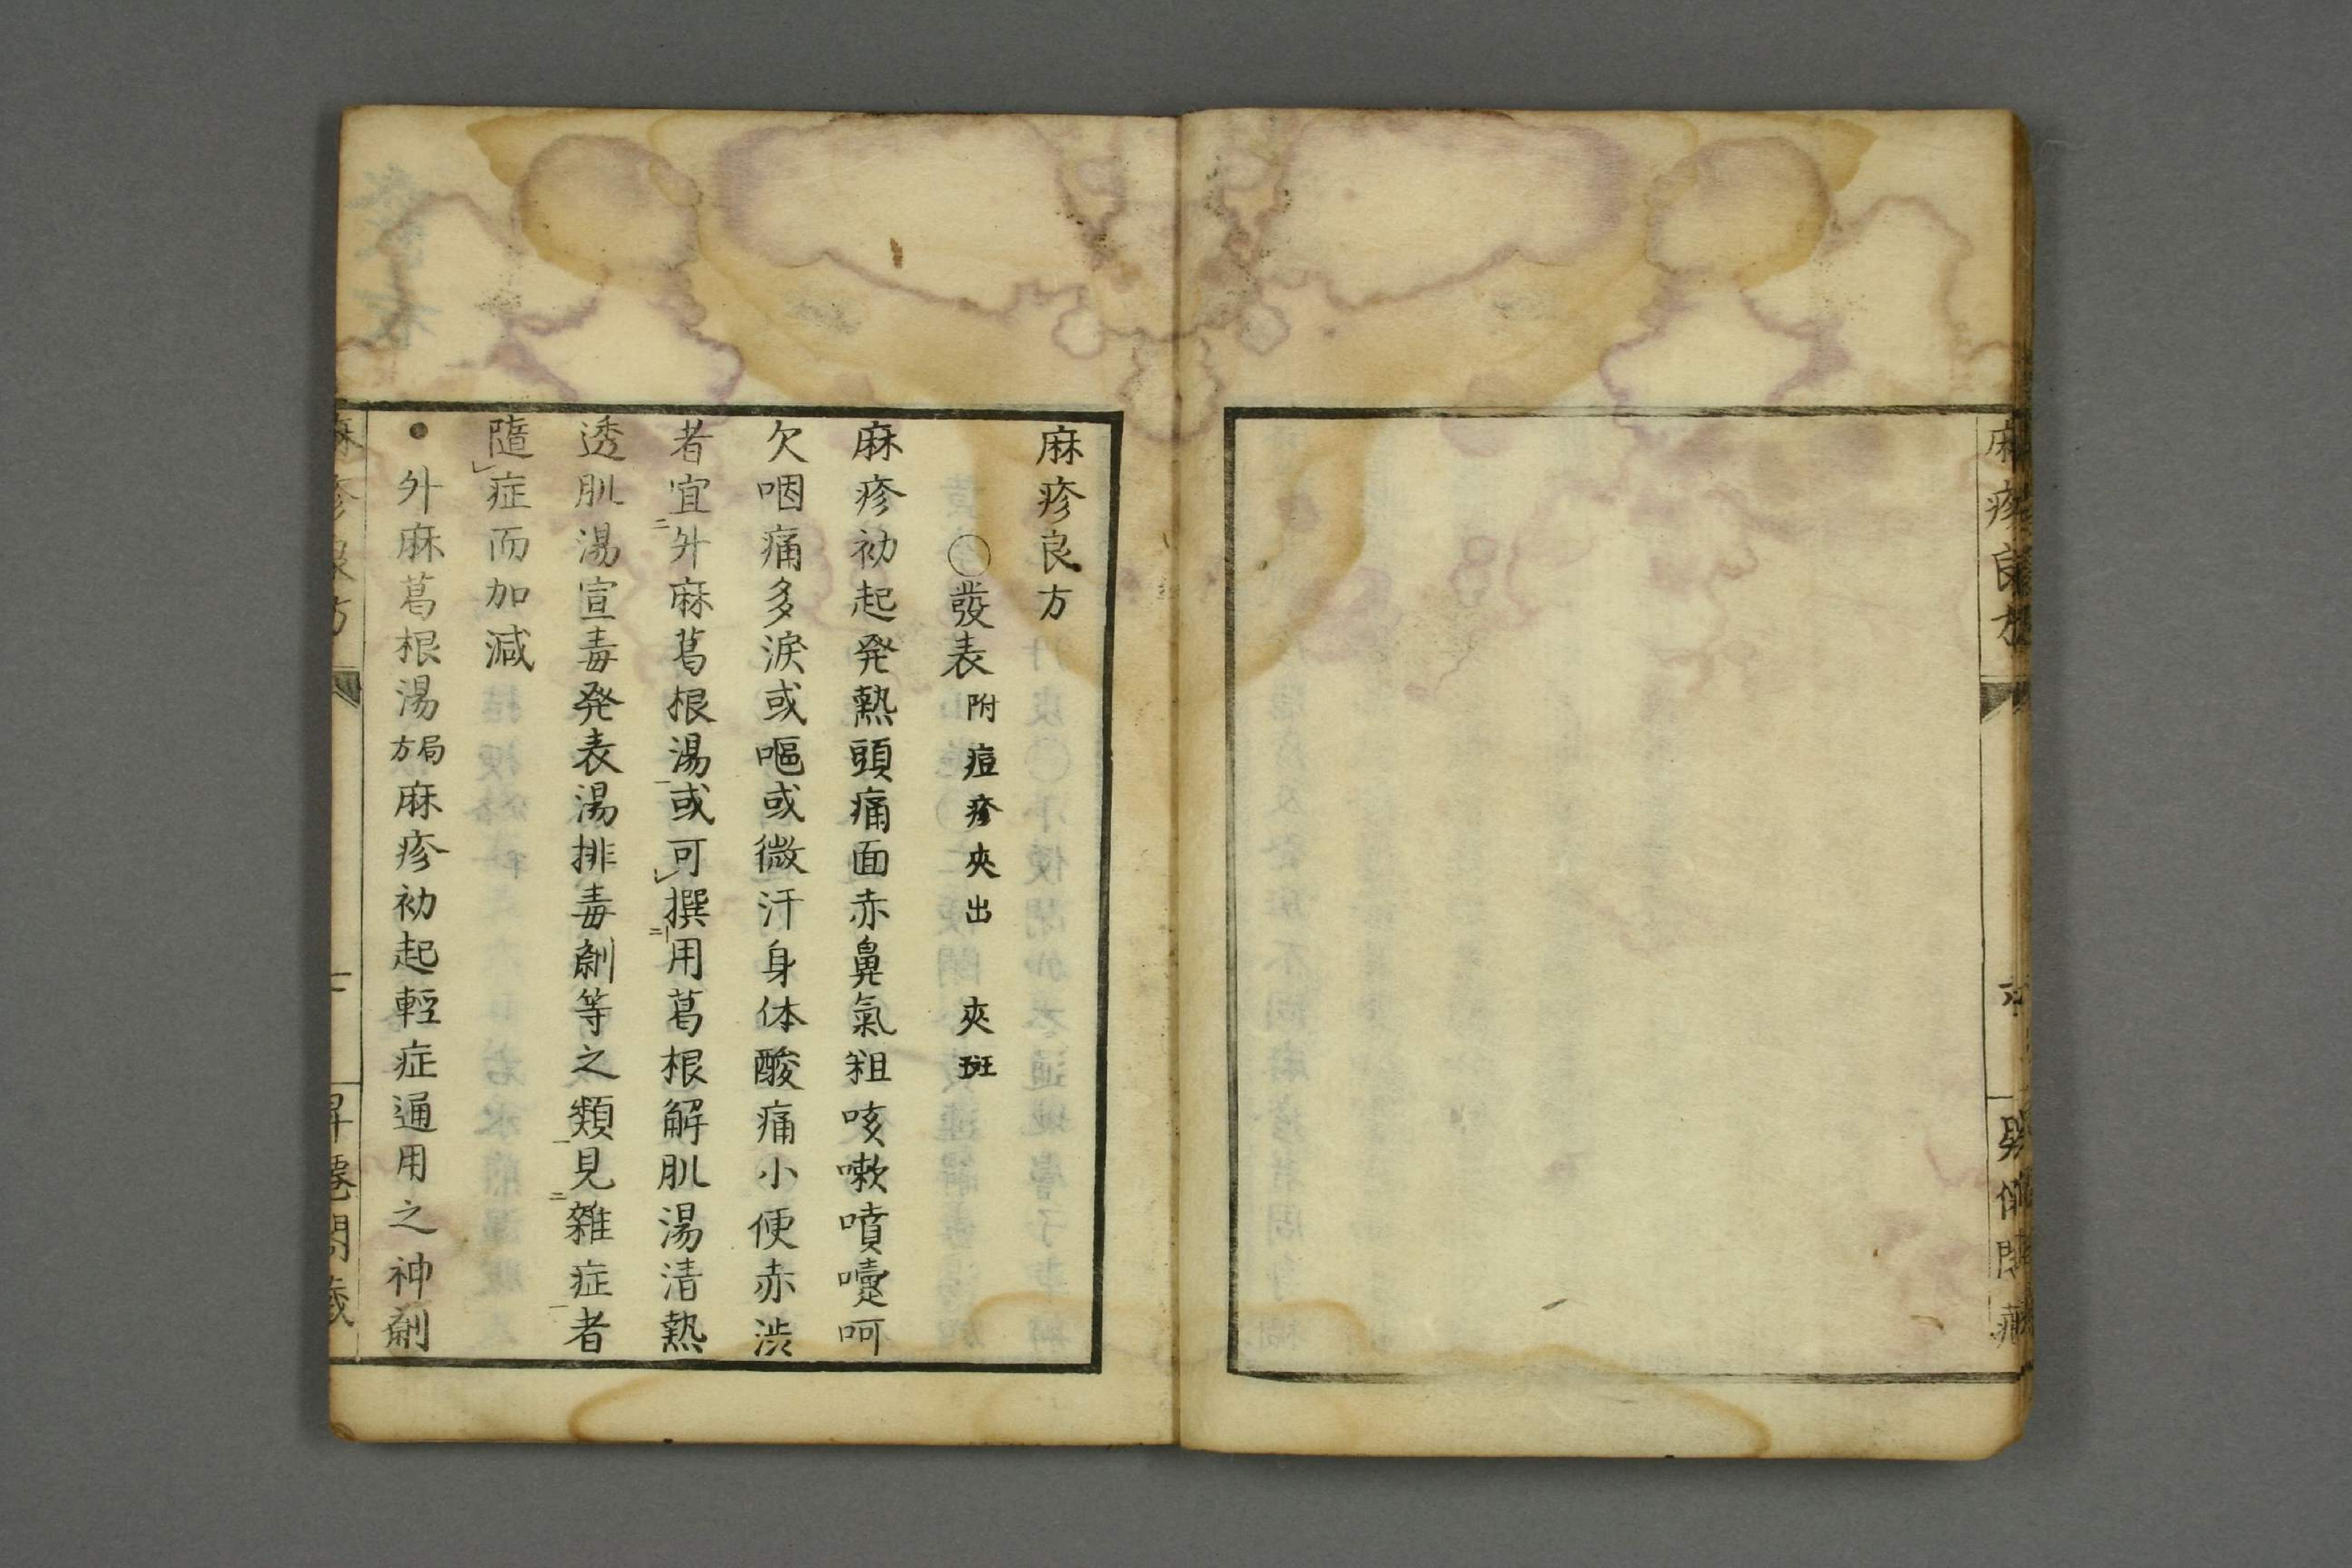 麻疹良方
麻疹良方
○發表 附 痘疹夾出 夾斑
麻疹初起発熱頭痛面赤鼻氣粗咳嗽噴嚔呵
欠咽痛多淚或嘔或微汗身体酸痛小便赤渋
者宜升麻葛根湯或可撰用葛根解肌湯清熱
透肌湯宣毒発表湯排毒劑等之類見雜症者
隨症而加減
●升麻葛根湯局方麻疹初起輕症通用之神劑